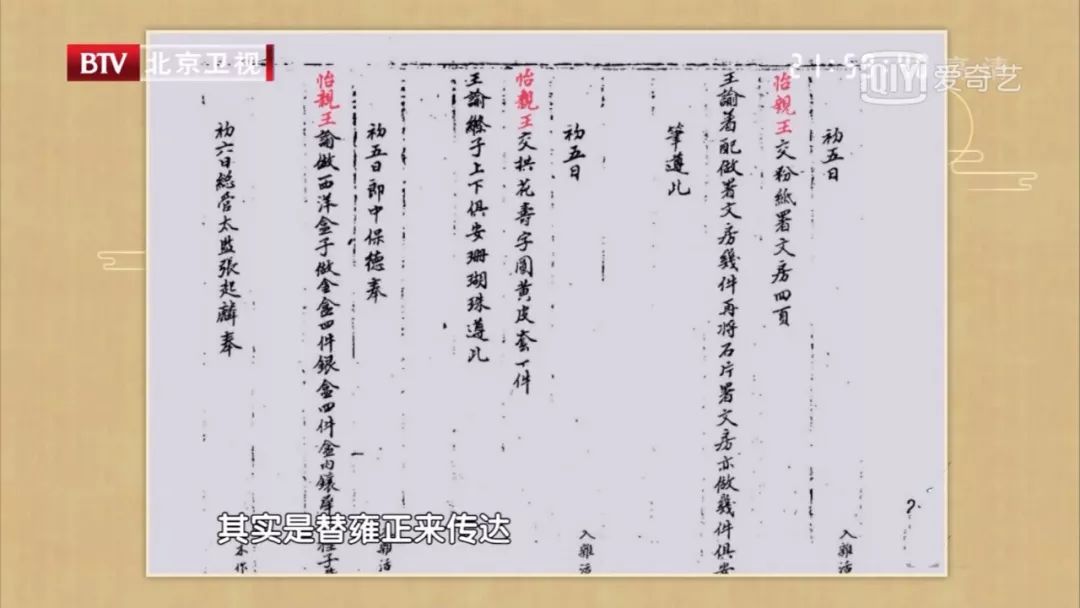 BTV 北京卫视
爱奇艺
初五日
入雜活
怡親王交粉紙署文房四頁
王諭着配做署文房幾件再將石片署文房亦做幾件俱安
筆遵此
初五日
入雜活
怡親王交拱花壽字圓黃皮套一件
王諭縧子上下俱安珊瑚珠遵此
初五日郎中保德奉
雜活
怡親王諭做西洋金子做金盒四件銀盒四件盒内鑲
木作
初六日總管太監張起麟奉
其实是替雍正来传达